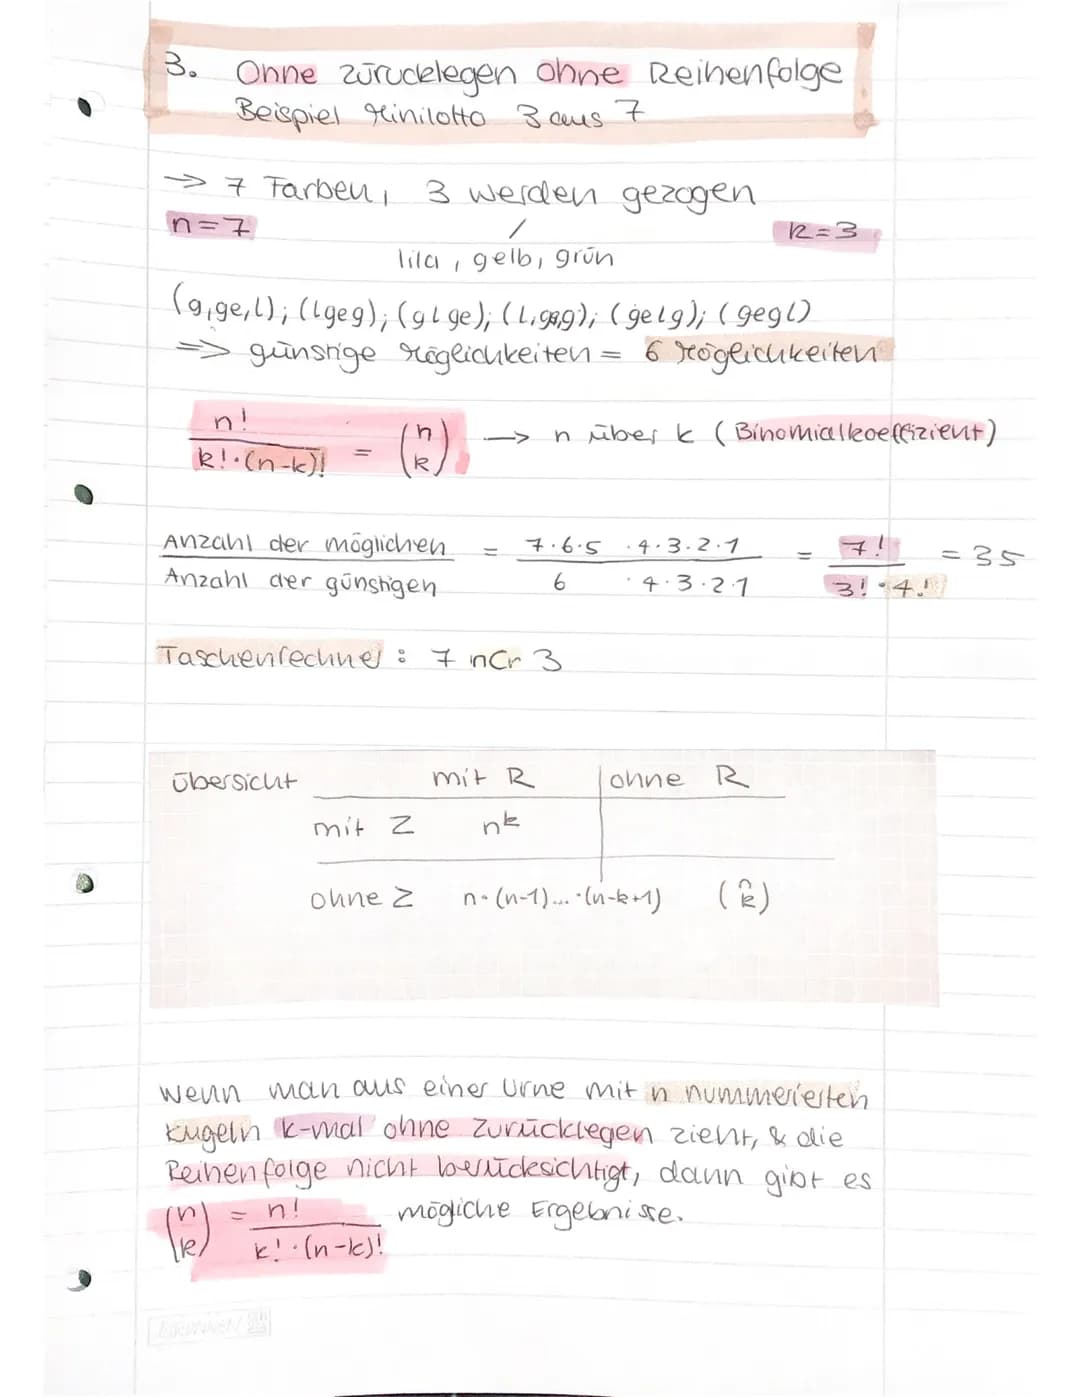 3. Ohne zurücklegen ohne Reihenfolge
Beispiel Minilotto 3 aus 7
→ 7 Farben, 3 werden gezogen
n=7 / k=3
lila, gelb, grün
(g,ge,l); (l ge g); (g l ge); (l,ge,g); (ge l g); (ge g l)
=> günstige Möglichkeiten = 6 Möglichkeiten
n! / k!·(n-k)! = (n k) → n über k (Binomialkoeffizient)
Anzahl der möglichen / Anzahl der günstigen = 7·6·5·4·3·2·1 / 6·4·3·2·1 = 7! / 3!·4! = 35
Taschenrechner: 7 nCr 3
Übersicht mit R ohne R
mit Z n^k
ohne Z n·(n-1)...·(n-k+1) (n k)
Wenn man aus einer Urne mit n nummerierten
Kugeln k-mal ohne Zurücklegen zieht, & die
Reihenfolge nicht berücksichtigt, dann gibt es
(n k) = n! / k!·(n-k)! mögliche Ergebnisse.
BRUNNEN